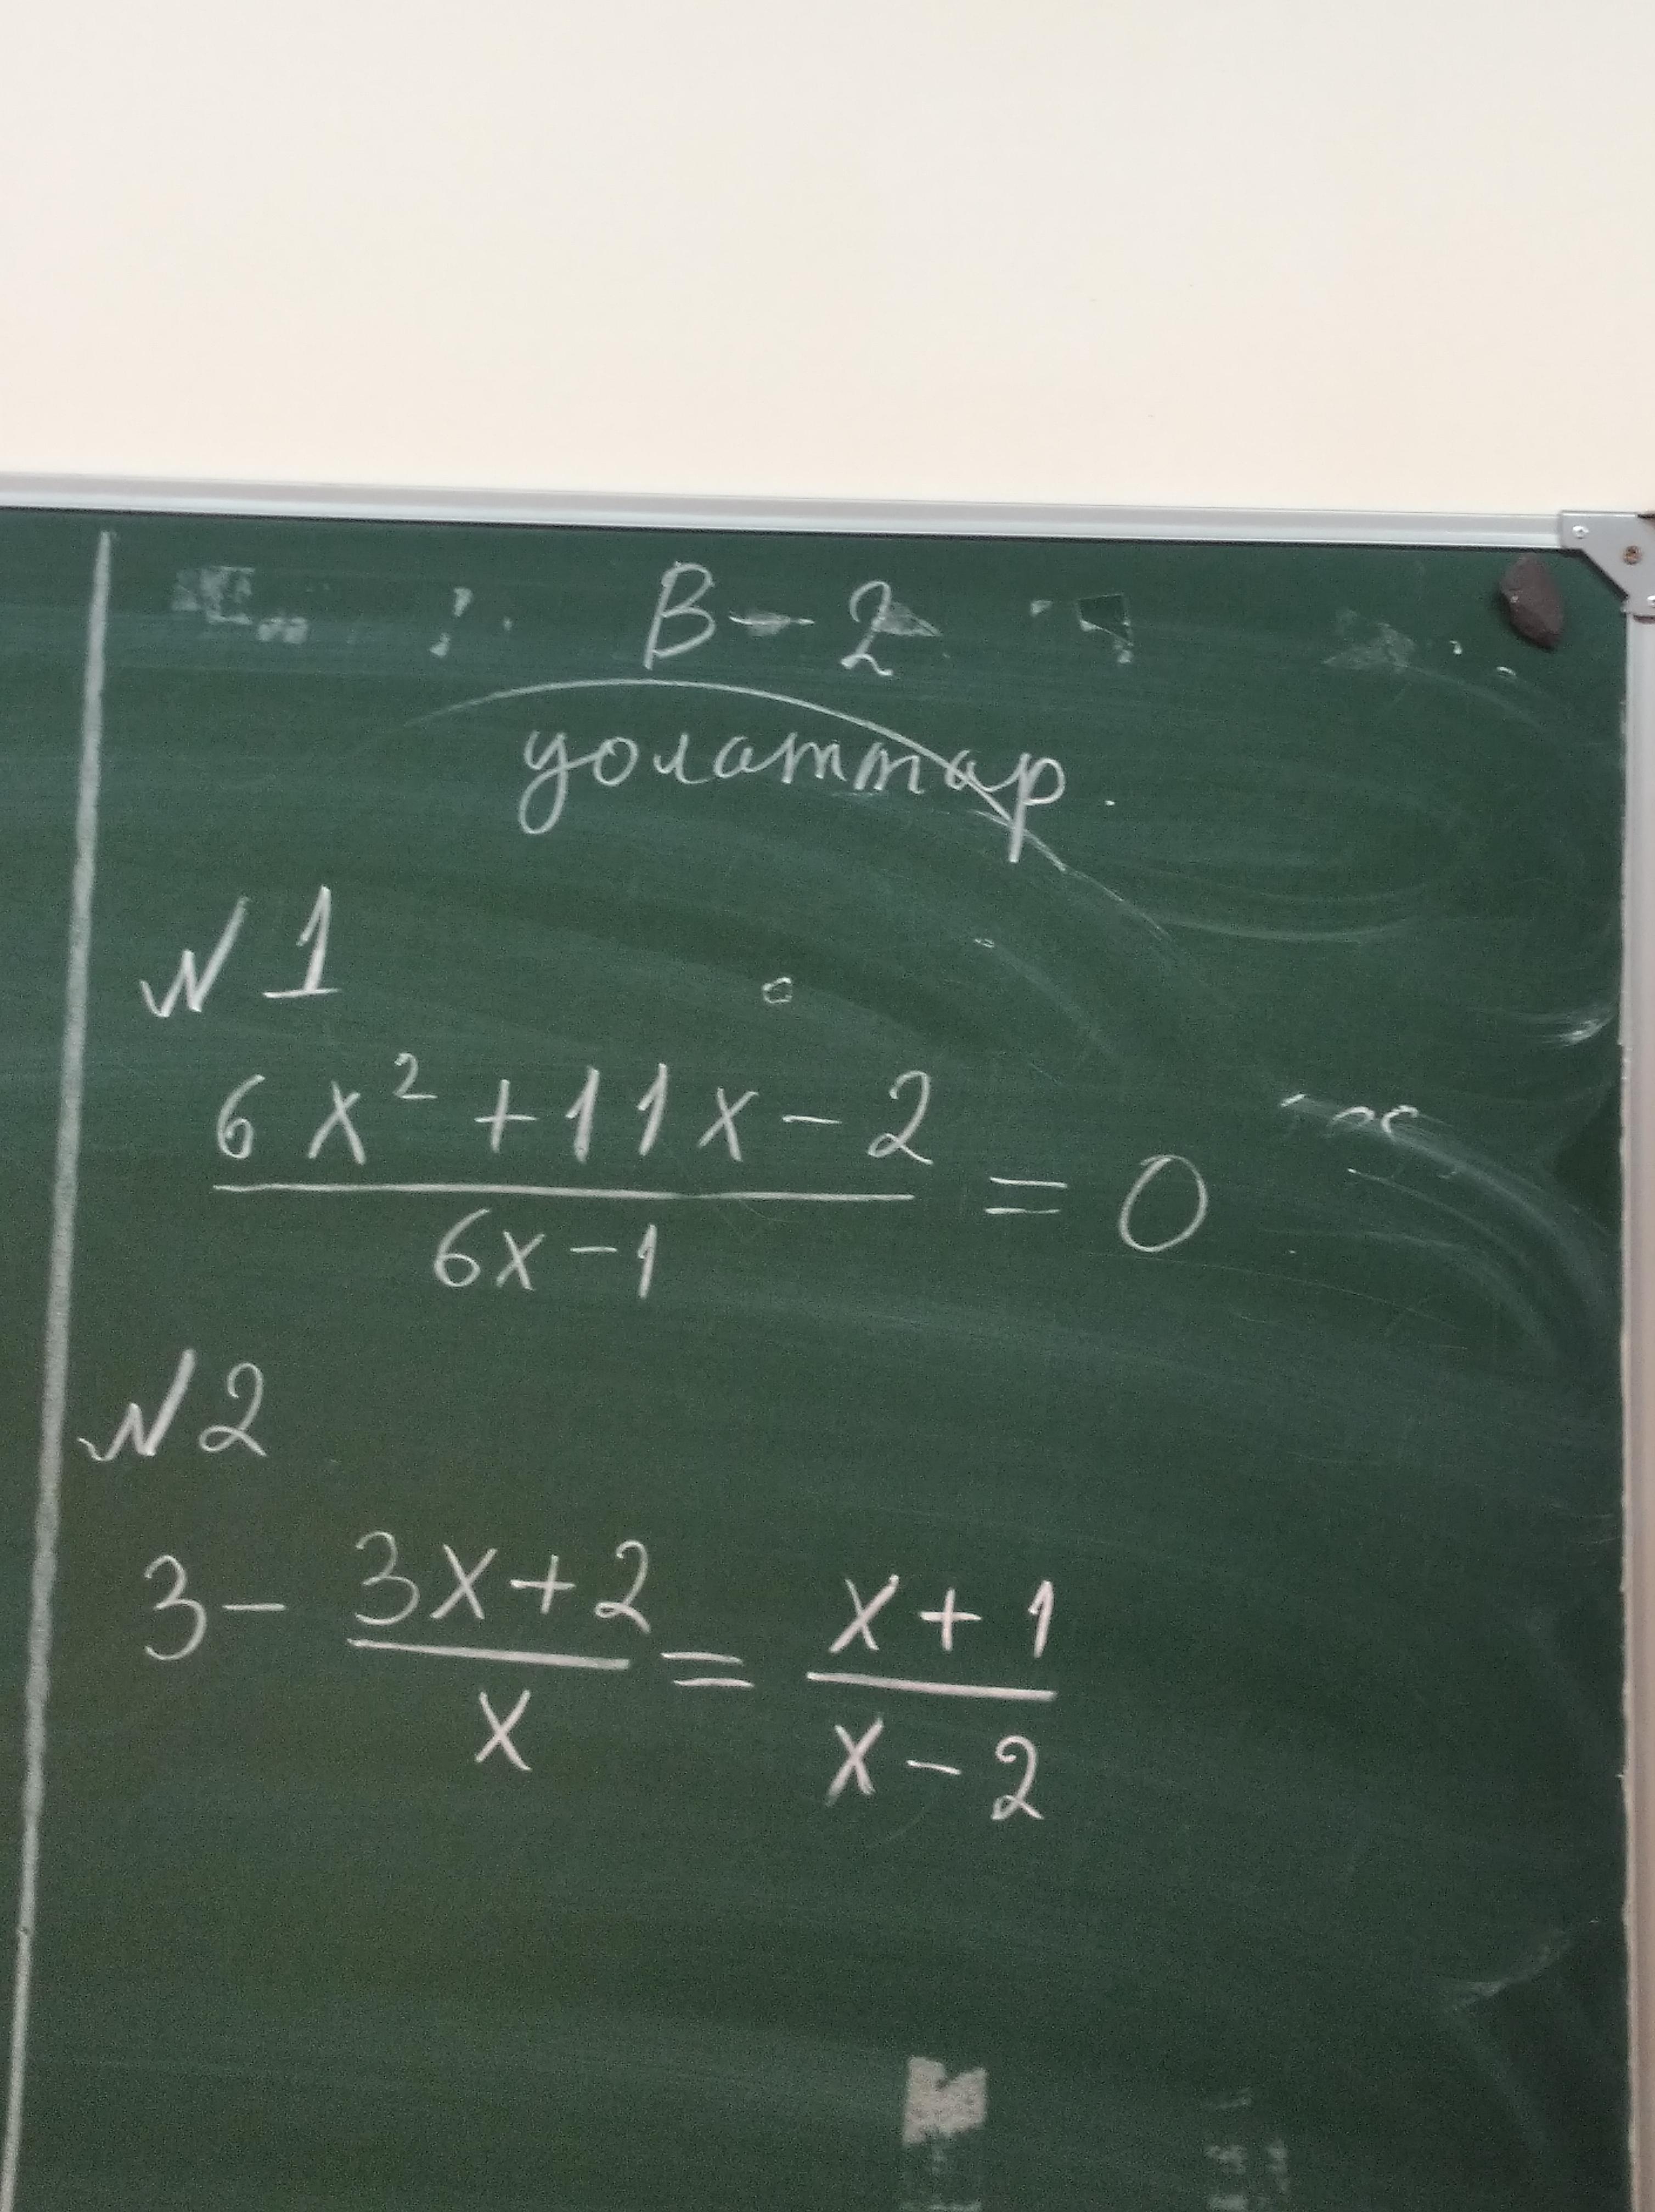 В - 2
уолаттар.
N 1
6x² + 11x - 2
6x - 1
= 0
N 2
3 - 3x + 2 / x = x + 1 / x - 2